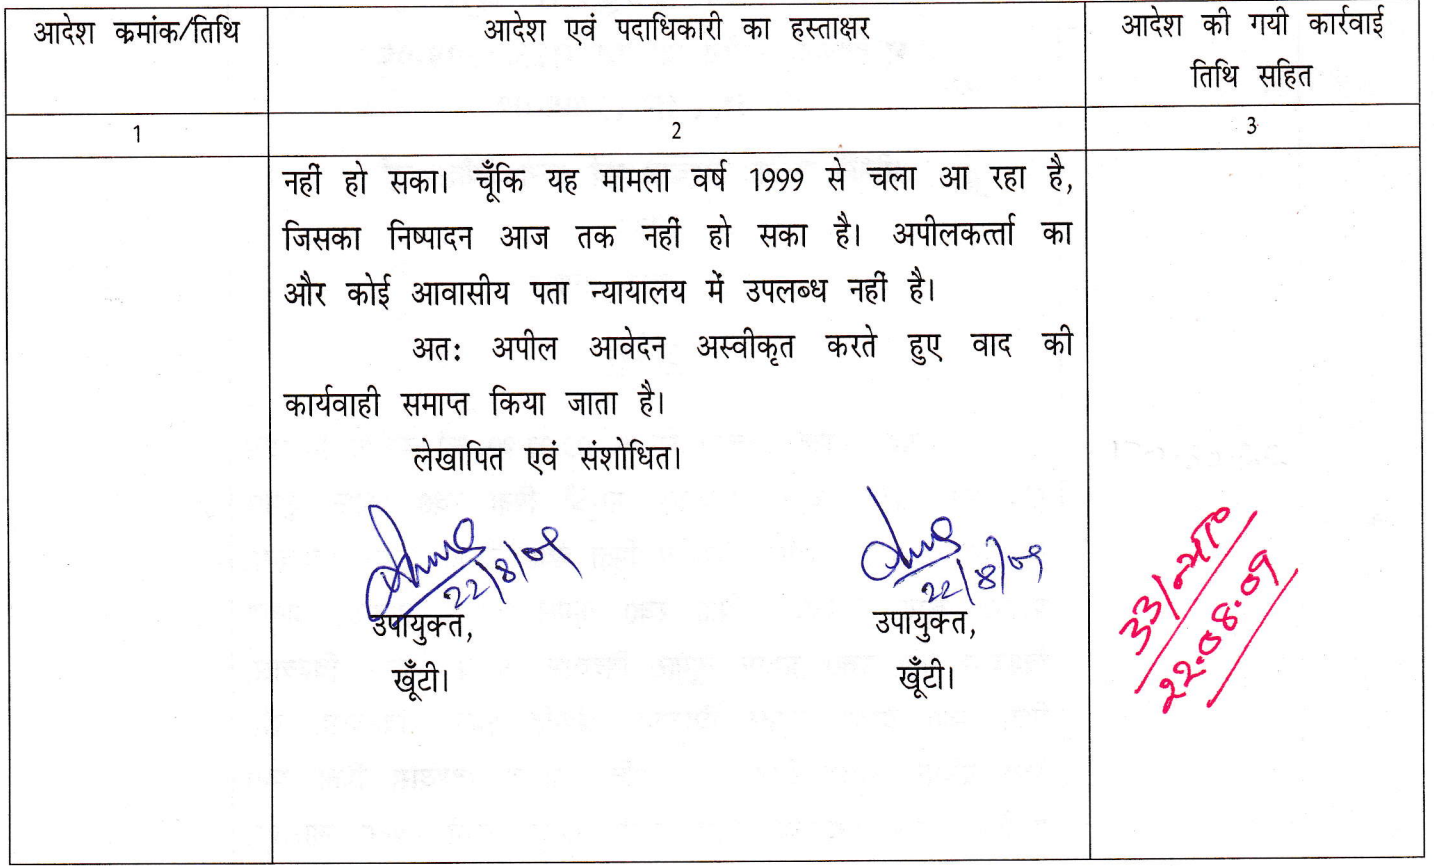 आदेश क्रमांक/तिथि
आदेश एवं पदाधिकारी का हस्ताक्षर
आदेश की गयी कार्रवाई
तिथि सहित
1
2
3
नहीं हो सका। चूँकि यह मामला वर्ष 1999 से चला आ रहा है,
जिसका निष्पादन आज तक नहीं हो सका है। अपीलकर्त्ता का
और कोई आवासीय पता न्यायालय में उपलब्ध नहीं है।
अतः अपील आवेदन अस्वीकृत करते हुए वाद की
कार्यवाही समाप्त किया जाता है।
लेखापित एवं संशोधित।
22/8/09
उपायुक्त,
खूँटी।
22/8/09
उपायुक्त,
खूँटी।
33/न्या०
22.08.09